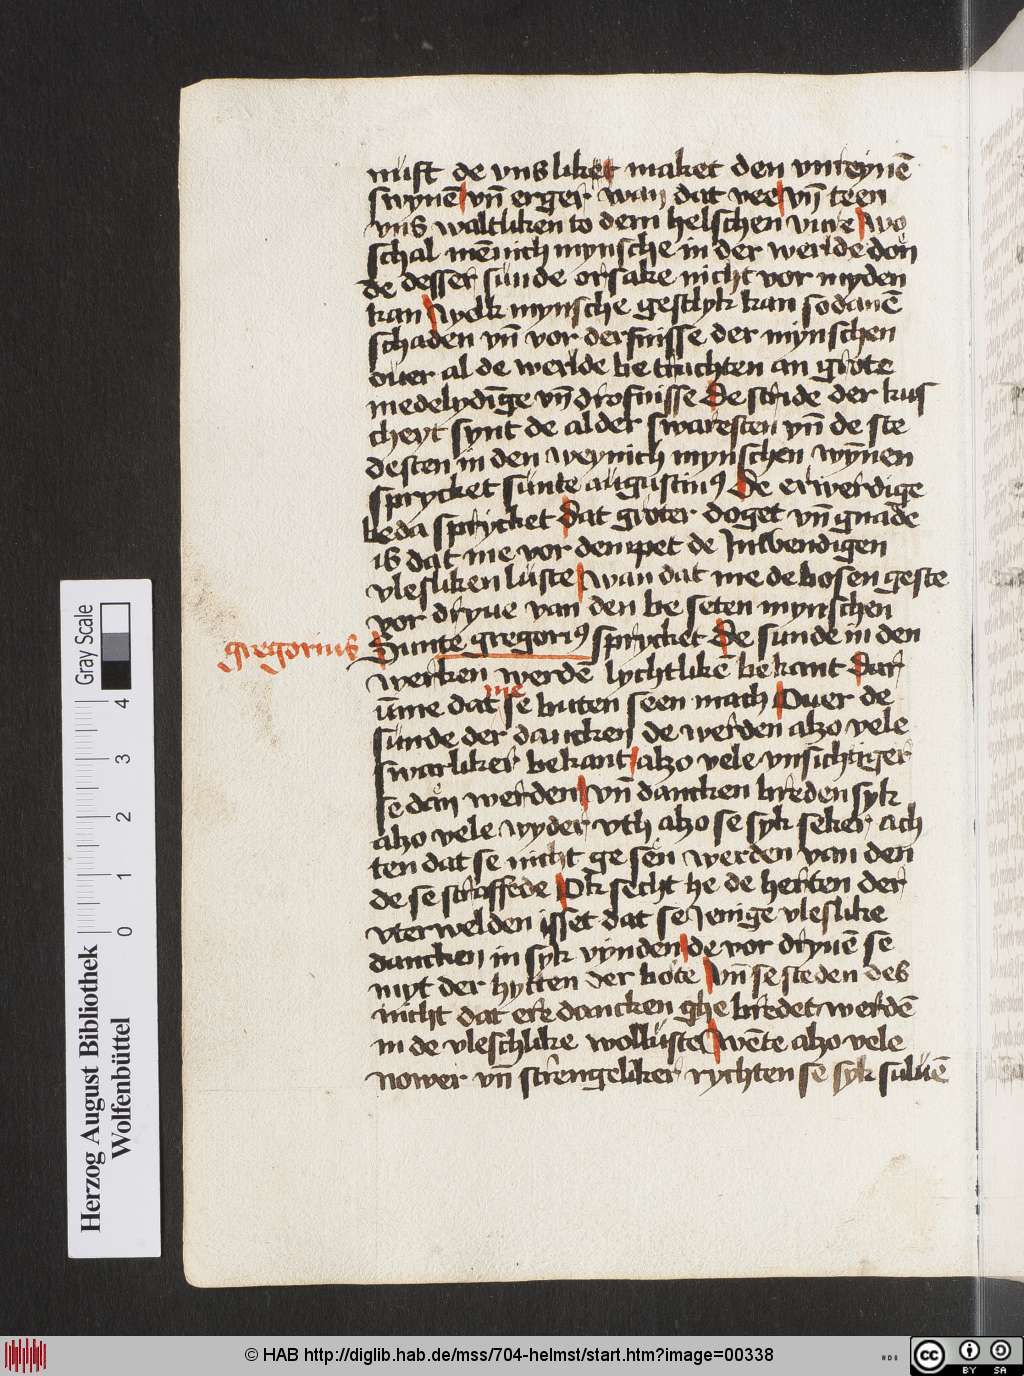 nuft de vns liket maket den vnreynē
swynē vn̄ erger wan dat vee vn̄ teen
vns waltliken to dem helschen vure wo
schal mēnich mynsche in der werlde don
de desser sunde orsake nicht vor myden
kan welk mynsche gestlyk kan sodanē
schaden vn̄ vor derfnisse der mynschen
ouer al de werlde be trachten an grote
medelydīge vn̄ drofnisse De stride der kus
cheyt synt de alder swaresten vn̄ de ste
desten in den weynich mynschen wȳnen
sprycket sunte augustinꝰ De erwerdige
beda sprycket Dat groter doget vn̄ gnade
is dat me vor dempet de Inwendigen
vlesliken luste wan dat me de bosen geste
vor dryue van den be seten mynschen
gregorius Sunte gregoriꝰ sprycket De sunde in den
werken werdē lychtlikē bekant Dar
ūme dat me se buten seen mach Ouer de
sunde der dancken de werden alzo vele
swarliker bekant alzo vele vnsichtiger
se dan werden vn̄ dancken breden syk
alzo vele wyder vth alzo se syk seker ach
ten dat se nicht ge sen werden van den
de se straffede Ok secht he de herten der
vterwelden isset dat se Jenige vleslike
dancken in syk vynden de vor dryuē se
myt der hytten der bote vn̄ se steden des
nicht dat ere dancken ghe bredet werdē
in de vleschlike wolluste wēte alzo vele
nower vn̄ strengeliker rychten se syk suluē
Gray Scale
0 1 2 3 4
Herzog August Bibliothek
Wolfenbüttel
© HAB http://diglib.hab.de/mss/704-helmst/start.htm?image=00338
HAB
cc BY SA